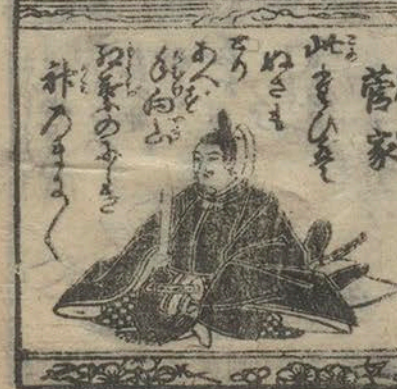 菅家
此たびは
ぬさも
とり
あへず
手向山
紅葉のにしき
神のまに〱